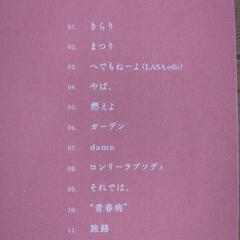 01. きらり
02. まつり
03. へでもねーよ (LASA edit)
04. やば。
05. 燃えよ
06. ガーデン
07. damn
08. ロンリーラプソディ
09. それでは、
10. "青春病"
11. 旅路